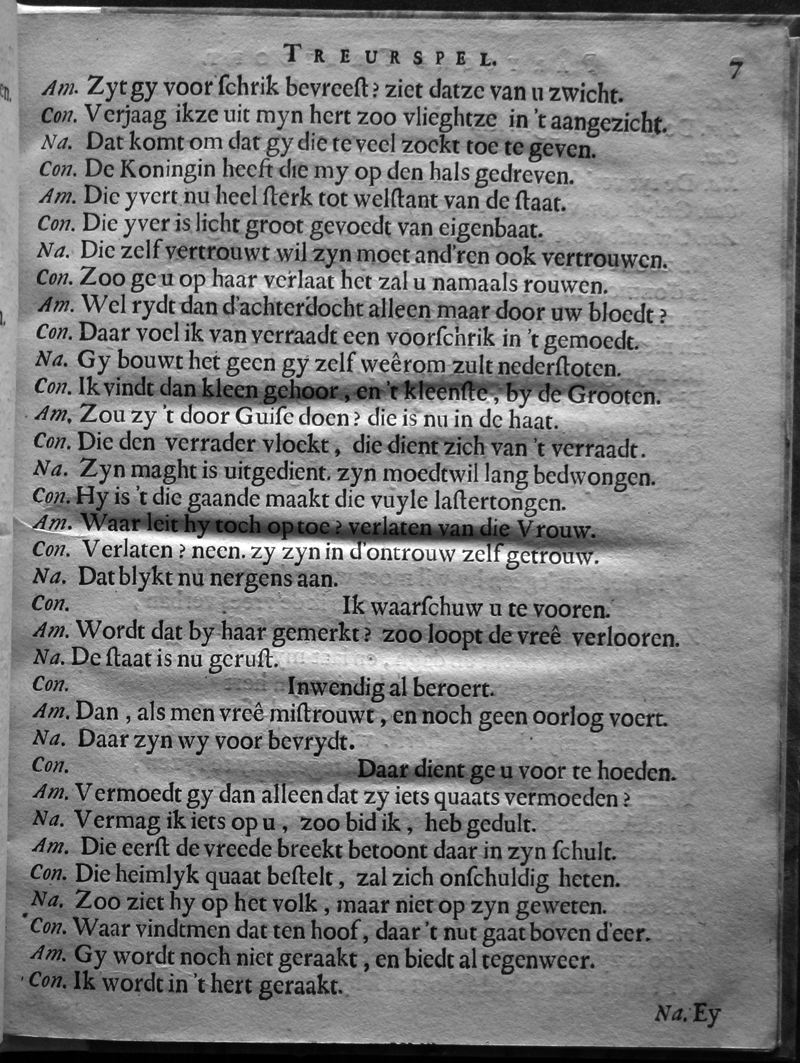 TREURSPEL. 7
Am. Zyt gy voor ſchrik bevreeſt? ziet datze van u zwicht.
Con. Verjaag ikze uit myn hert zoo vlieghtze in 't aangezicht.
Na. Dat komt om dat gy die te veel zoekt toe te geven.
Con. De Koningin heeft die my op den hals gedreven.
Am. Die yvert nu heel ſterk tot welſtant van de ſtaat.
Con. Die yver is licht groot gevoedt van eigenbaat.
Na. Die zelf vertrouwt wil zyn moet and'ren ook vertrouwen.
Con. Zoo ge u op haar verlaat het zal u namaals rouwen.
Am. Wel rydt dan d'achterdocht alleen maar door uw bloedt?
Con. Daar voel ik van verraadt een voorſchrik in 't gemoedt.
Na. Gy bouwt het geen gy zelf weêrom zult nederſtoten.
Con. Ik vindt dan kleen gehoor, en 't kleenſte, by de Grooten.
Am. Zou zy 't door Guiſe doen? die is nu in de haat.
Con. Die den verrader vloekt, die dient zich van 't verraadt.
Na. Zyn maght is uitgedient. zyn moedtwil lang bedwongen.
Con. Hy is 't die gaande maakt die vuyle laſtertongen.
Am. Waar leit hy toch op toe? verlaten van die Vrouw.
Con. Verlaten? neen. zy zyn in d'ontrouw zelf getrouw.
Na. Dat blykt nu nergens aan.
Con. Ik waarſchuw u te vooren.
Am. Wordt dat by haar gemerkt? zoo loopt de vreê verlooren.
Na. De ſtaat is nu geruſt.
Con. Inwendig al beroert.
Am. Dan, als men vreê miſtrouwt, en noch geen oorlog voert.
Na. Daar zyn wy voor bevrydt.
Con. Daar dient ge u voor te hoeden.
Am. Vermoedt gy dan alleen dat zy iets quaats vermoeden?
Na. Vermag ik iets op u, zoo bid ik, heb gedult.
Am. Die eerſt de vreede breekt betoont daar in zyn ſchult.
Con. Die heimlyk quaat beſtelt, zal zich onſchuldig heten.
Na. Zoo ziet hy op het volk, maar niet op zyn geweten.
Con. Waar vindtmen dat ten hoof, daar 't nut gaat boven d'eer.
Am. Gy wordt noch niet geraakt, en biedt al tegenweer.
Con. Ik wordt in 't hert geraakt.
Na. Ey